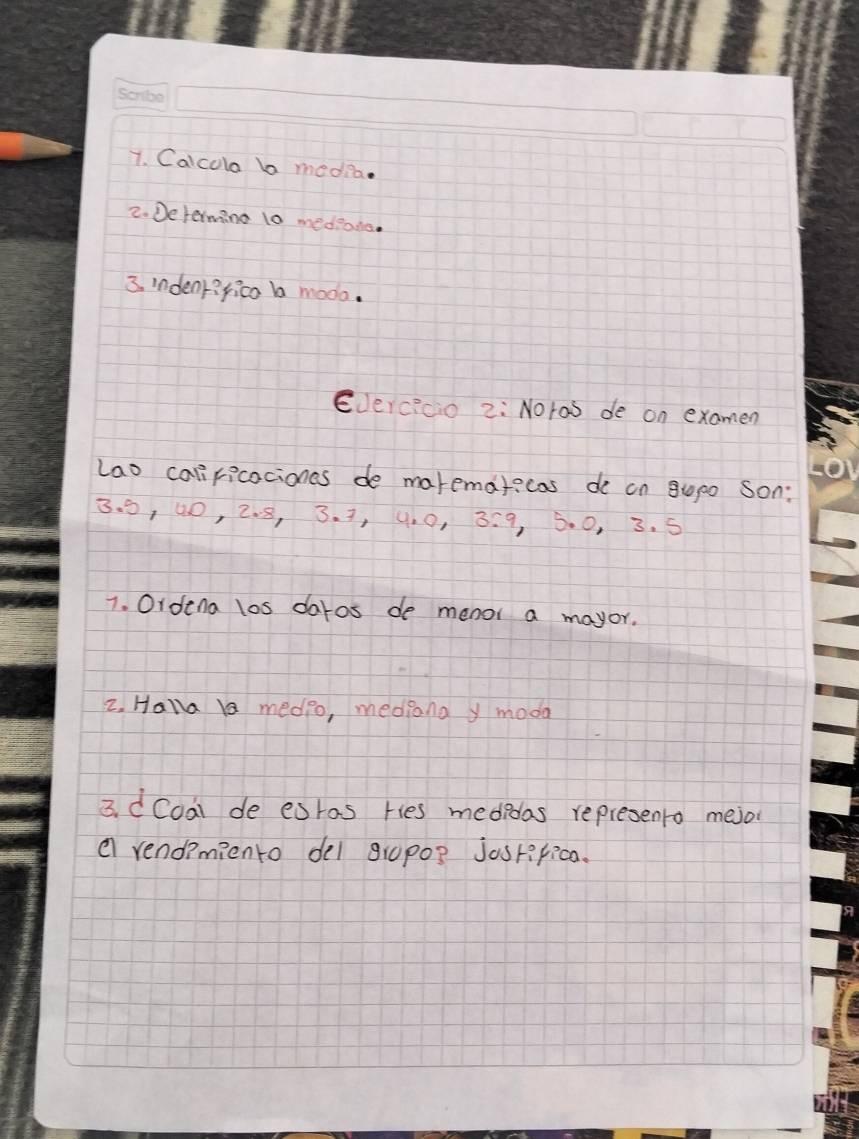 Scribe
1. Calcula la media.
2. Determina la mediana.
3. indentifica la moda.
EJercicio 2: Notas de un examen
Las calificaciones de matemáticas de un grupo son:
3.5, 4.0, 2.8, 3.7, 4.0, 3.9, 5.0, 3.5
1. Ordena los datos de menor a mayor.
2. Halla la media, mediana y moda
3. ¿Cuál de estas tres medidas representa mejor
el rendimiento del grupo? justifica.
LOV